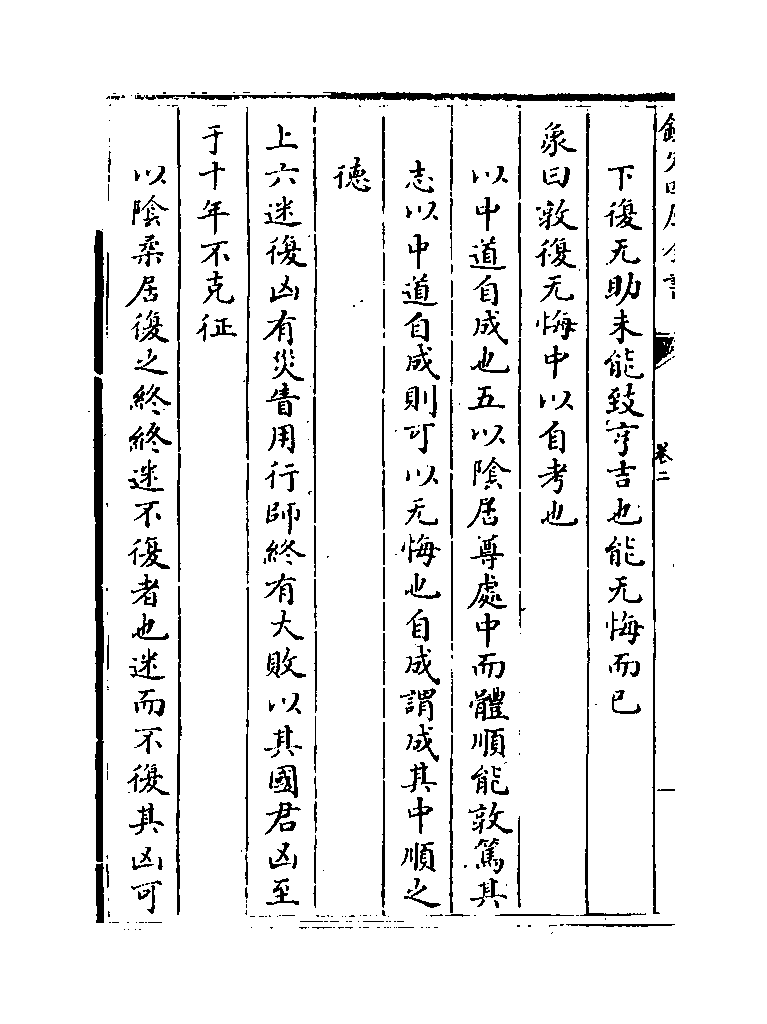 欽定四庫全書
卷二
下復无助未能致亨吉也能无悔而已
象曰敦復无悔中以自考也
以中道自成也五以陰居尊處中而體順能敦篤其
志以中道自成則可以无悔也自成謂成其中順之
德
上六迷復凶有災眚用行師終有大敗以其國君凶至
于十年不克征
以陰柔居復之終終迷不復者也迷而不復其凶可